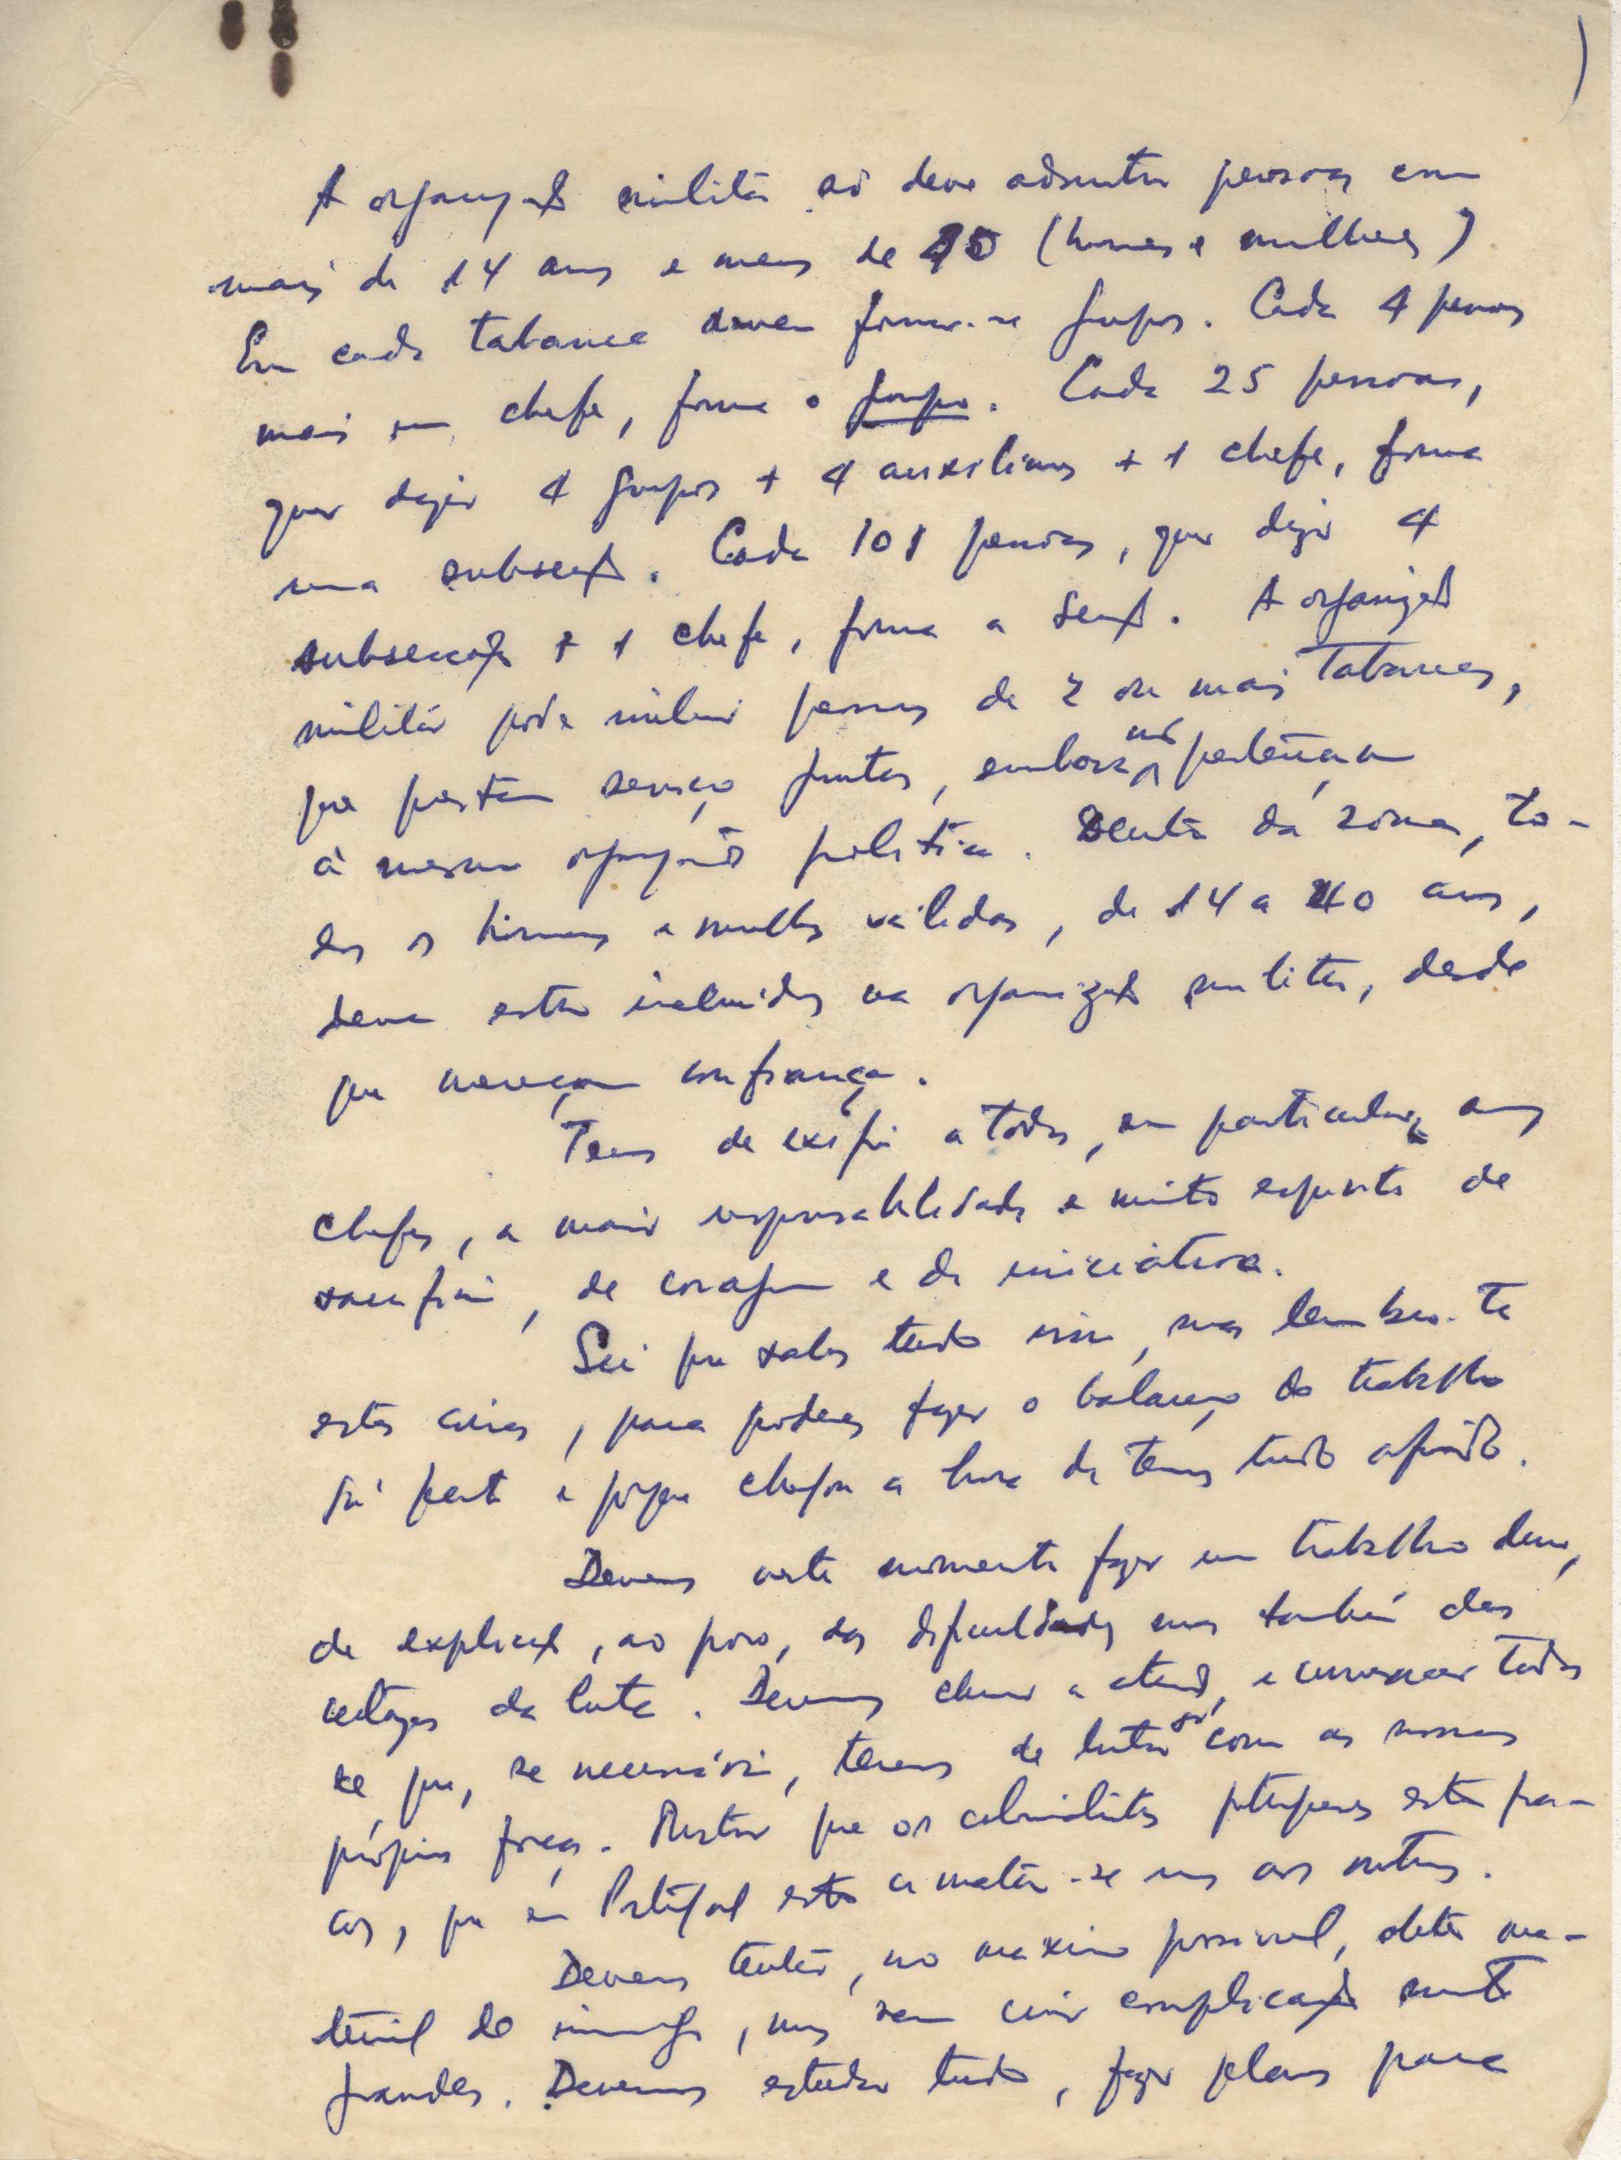 A organização militar só deve admitir pessoas com
mais de 14 anos e menos de 40 (homens e mulheres)
Em cada tabanca devem formar-se grupos. Cada 4 pessoas
mais um chefe, forma o grupo. Cada 25 pessoas,
quer dizer 4 grupos + 4 auxiliares + 1 chefe, forma
uma subsecção. Cada 101 pessoas, quer dizer 4
subsecções + 1 chefe, forma a Secção. A organização
militar pode incluir pessoas de 2 ou mais Tabancas,
que prestam serviço juntas, embora não pertençam
à mesma organização política. Dentro da zona, to-
dos os homens e mulheres válidos, de 14 a 40 anos,
devem estar incluidos na organização militar, desde
que mereçam confiança.
Temos de exigir a todos, em particular aos
chefes, a maior responsabilidade e muito espírito de
sacrifício, de coragem e de iniciativa.
Sei que sabes tudo isso, mas lembro-te
estas coisas, para poderes fazer o balanço do trabalho
já feito e porque chegou a hora de termos tudo afinado.
Devemos neste momento fazer um trabalho
de explicação, ao povo, das dificuldades mas também das
vantagens da luta. Devemos chamar a atenção, e convencer todos
de que, se necessário, temos de lutar só com as nossas
próprias forças. Mostrar que os colonialistas portugueses estão fra-
cos, que em Portugal estão a matar-se uns aos outros.
Devemos tentar, no maximo possivel, obter ma-
terial do inimigo, mas sem criar complicações muito
grandes. Devemos estudar tudo, fazer planos para